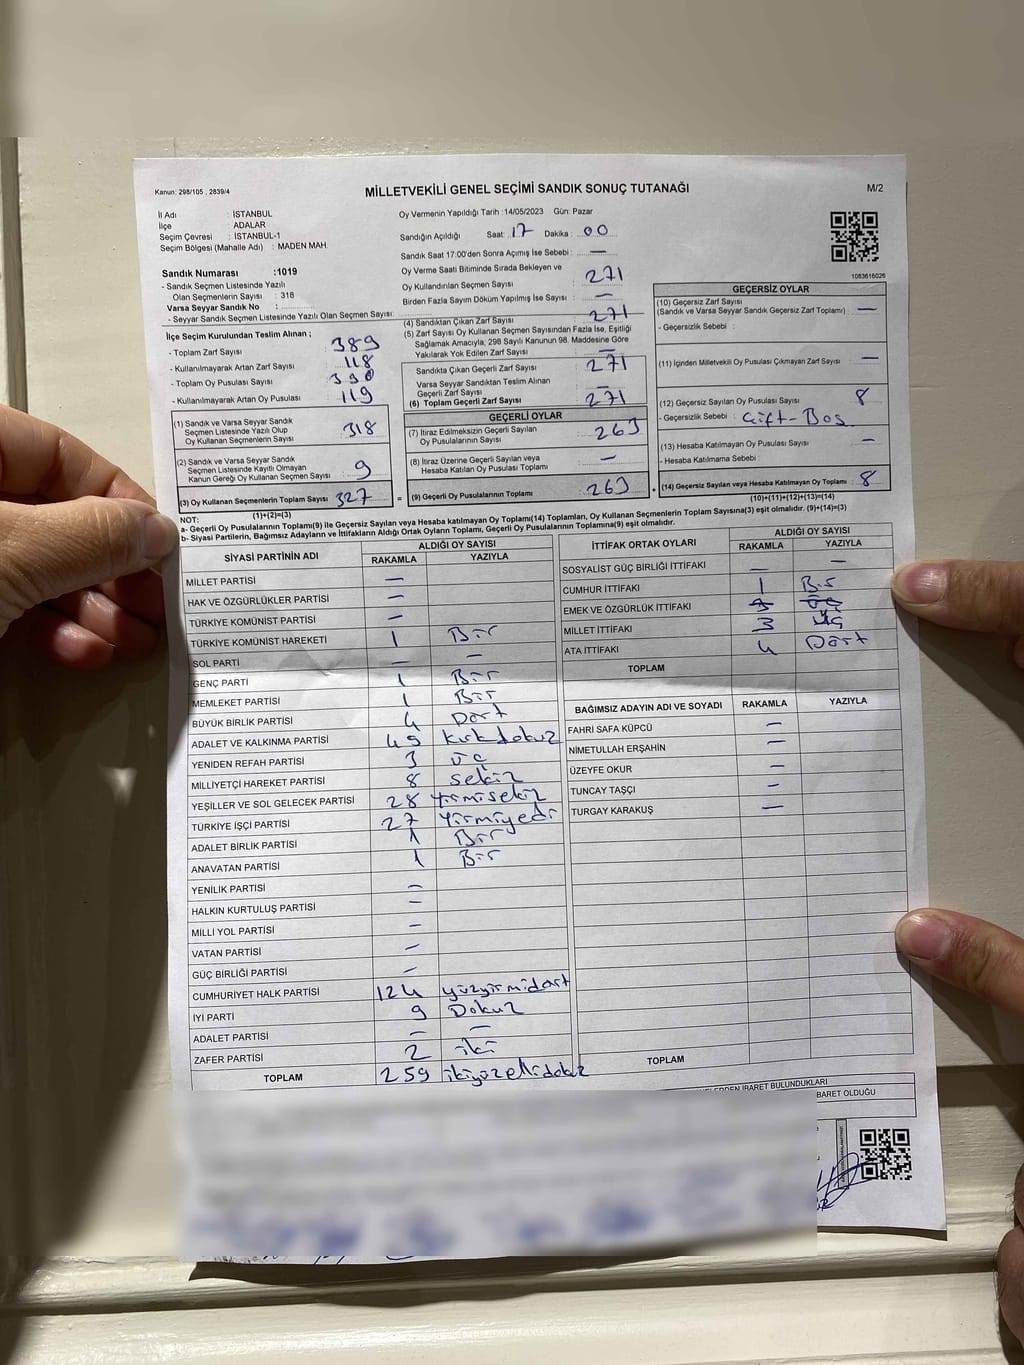 Kanun: 298/105 , 2839/4
MİLLETVEKİLİ GENEL SEÇİMİ SANDIK SONUÇ TUTANAĞI
M/2
İl Adı : İSTANBUL
İlçe : ADALAR
Seçim Çevresi : İSTANBUL-1
Seçim Bölgesi (Mahalle Adı) : MADEN MAH.
Sandık Numarası :1019
- Sandık Seçmen Listesinde Yazılı
Olan Seçmenlerin Sayısı : 318
Varsa Seyyar Sandık No :
- Seyyar Sandık Seçmen Listesinde Yazılı Olan Seçmen Sayısı:
Oy Vermenin Yapıldığı Tarih :14/05/2023 Gün: Pazar
Sandığın Açıldığı Saat: 17 Dakika : 00
Sandık Saat 17:00'den Sonra Açımış İse Sebebi : —
Oy Verme Saati Bitiminde Sırada Bekleyen ve
Oy Kullandırılan Seçmen Sayısı : 271
Birden Fazla Sayım Döküm Yapılmış İse Sayısı : —
1083616026
İlçe Seçim Kurulundan Teslim Alınan ;
- Toplam Zarf Sayısı : 389
- Kullanılmayarak Artan Zarf Sayısı : 118
- Toplam Oy Pusulası Sayısı : 390
- Kullanılmayarak Artan Oy Pusulası : 119
(1) Sandık ve Varsa Seyyar Sandık
Seçmen Listesinde Yazılı Olup
Oy Kullanan Seçmenlerin Sayısı : 318
(2) Sandık ve Varsa Seyyar Sandık
Seçmen Listesinde Kayıtlı Olmayan
Kanun Gereği Oy Kullanan Seçmen Sayısı : 9
(3) Oy Kullanan Seçmenlerin Toplam Sayısı : 327
(1)+(2)=(3)
(4) Sandıktan Çıkan Zarf Sayısı : 271
(5) Zarf Sayısı Oy Kullanan Seçmen Sayısından Fazla İse, Eşitliği
Sağlamak Amacıyla; 298 Sayılı Kanunun 98. Maddesine Göre
Yakılarak Yok Edilen Zarf Sayısı : —
Sandıkta Çıkan Geçerli Zarf Sayısı : 271
Varsa Seyyar Sandıktan Teslim Alınan
Geçerli Zarf Sayısı : —
(6) Toplam Geçerli Zarf Sayısı : 271
GEÇERLİ OYLAR
(7) İtiraz Edilmeksizin Geçerli Sayılan
Oy Pusulalarının Sayısı : 263
(8) İtiraz Üzerine Geçerli Sayılan veya
Hesaba Katılan Oy Pusulası Toplamı : —
= (9) Geçerli Oy Pusulalarının Toplamı : 263 +
GEÇERSİZ OYLAR
(10) Geçersiz Zarf Sayısı
(Sandık ve Varsa Seyyar Sandık Geçersiz Zarf Toplamı) : —
- Geçersizlik Sebebi :
(11) İçinden Milletvekili Oy Pusulası Çıkmayan Zarf Sayısı : —
(12) Geçersiz Sayılan Oy Pusulası Sayısı : 8
- Geçersizlik Sebebi : Çift-Boş
(13) Hesaba Katılmayan Oy Pusulası Sayısı : —
- Hesaba Katılmama Sebebi :
(14) Geçersiz Sayılan veya Hesaba Katılmayan Oy Toplamı : 8
(10)+(11)+(12)+(13)=(14)
NOT:
a- Geçerli Oy Pusulalarının Toplamı(9) ile Geçersiz Sayılan veya Hesaba katılmayan Oy Toplamı(14) Toplamları, Oy Kullanan Seçmenlerin Toplam Sayısına(3) eşit olmalıdır. (9)+(14)=(3)
b- Siyasi Partilerin, Bağımsız Adayların ve İttifakların Aldığı Ortak Oyların Toplamı, Geçerli Oy Pusulalarının Toplamına(9) eşit olmalıdır.
SİYASİ PARTİNİN ADI ALDIĞI OY SAYISI
RAKAMLA YAZIYLA
MİLLET PARTİSİ —
HAK VE ÖZGÜRLÜKLER PARTİSİ —
TÜRKİYE KOMÜNİST PARTİSİ —
TÜRKİYE KOMÜNİST HAREKETİ 1 Bir
SOL PARTİ — —
GENÇ PARTİ 1 Bir
MEMLEKET PARTİSİ 1 Bir
BÜYÜK BİRLİK PARTİSİ 4 Dört
ADALET VE KALKINMA PARTİSİ 49 Kırkdokuz
YENİDEN REFAH PARTİSİ 3 üç
MİLLİYETÇİ HAREKET PARTİSİ 8 sekiz
YEŞİLLER VE SOL GELECEK PARTİSİ 28 Yirmisekiz
TÜRKİYE İŞÇİ PARTİSİ 27 Yirmiyedi
ADALET BİRLİK PARTİSİ 1 Bir
ANAVATAN PARTİSİ 1 Bir
YENİLİK PARTİSİ —
HALKIN KURTULUŞ PARTİSİ —
MİLLİ YOL PARTİSİ —
VATAN PARTİSİ —
GÜÇ BİRLİĞİ PARTİSİ —
CUMHURİYET HALK PARTİSİ 124 yüzyirmidört
İYİ PARTİ 9 Dokuz
ADALET PARTİSİ — —
ZAFER PARTİSİ 2 iki
TOPLAM 259 ikiyüzellidokuz
İTTİFAK ORTAK OYLARI ALDIĞI OY SAYISI
RAKAMLA YAZIYLA
SOSYALİST GÜÇ BİRLİĞİ İTTİFAKI — —
CUMHUR İTTİFAKI 1 Bir
EMEK VE ÖZGÜRLÜK İTTİFAKI
MİLLET İTTİFAKI 3 Üç
ATA İTTİFAKI 4 Dört
TOPLAM
BAĞIMSIZ ADAYIN ADI VE SOYADI RAKAMLA YAZIYLA
FAHRİ SAFA KÜPCÜ —
NİMETULLAH ERŞAHİN —
ÜZEYFE OKUR —
TUNCAY TAŞÇI —
TURGAY KARAKUŞ —
TOPLAM
İBARET BULUNDUKLARI
BARET OLDUĞU